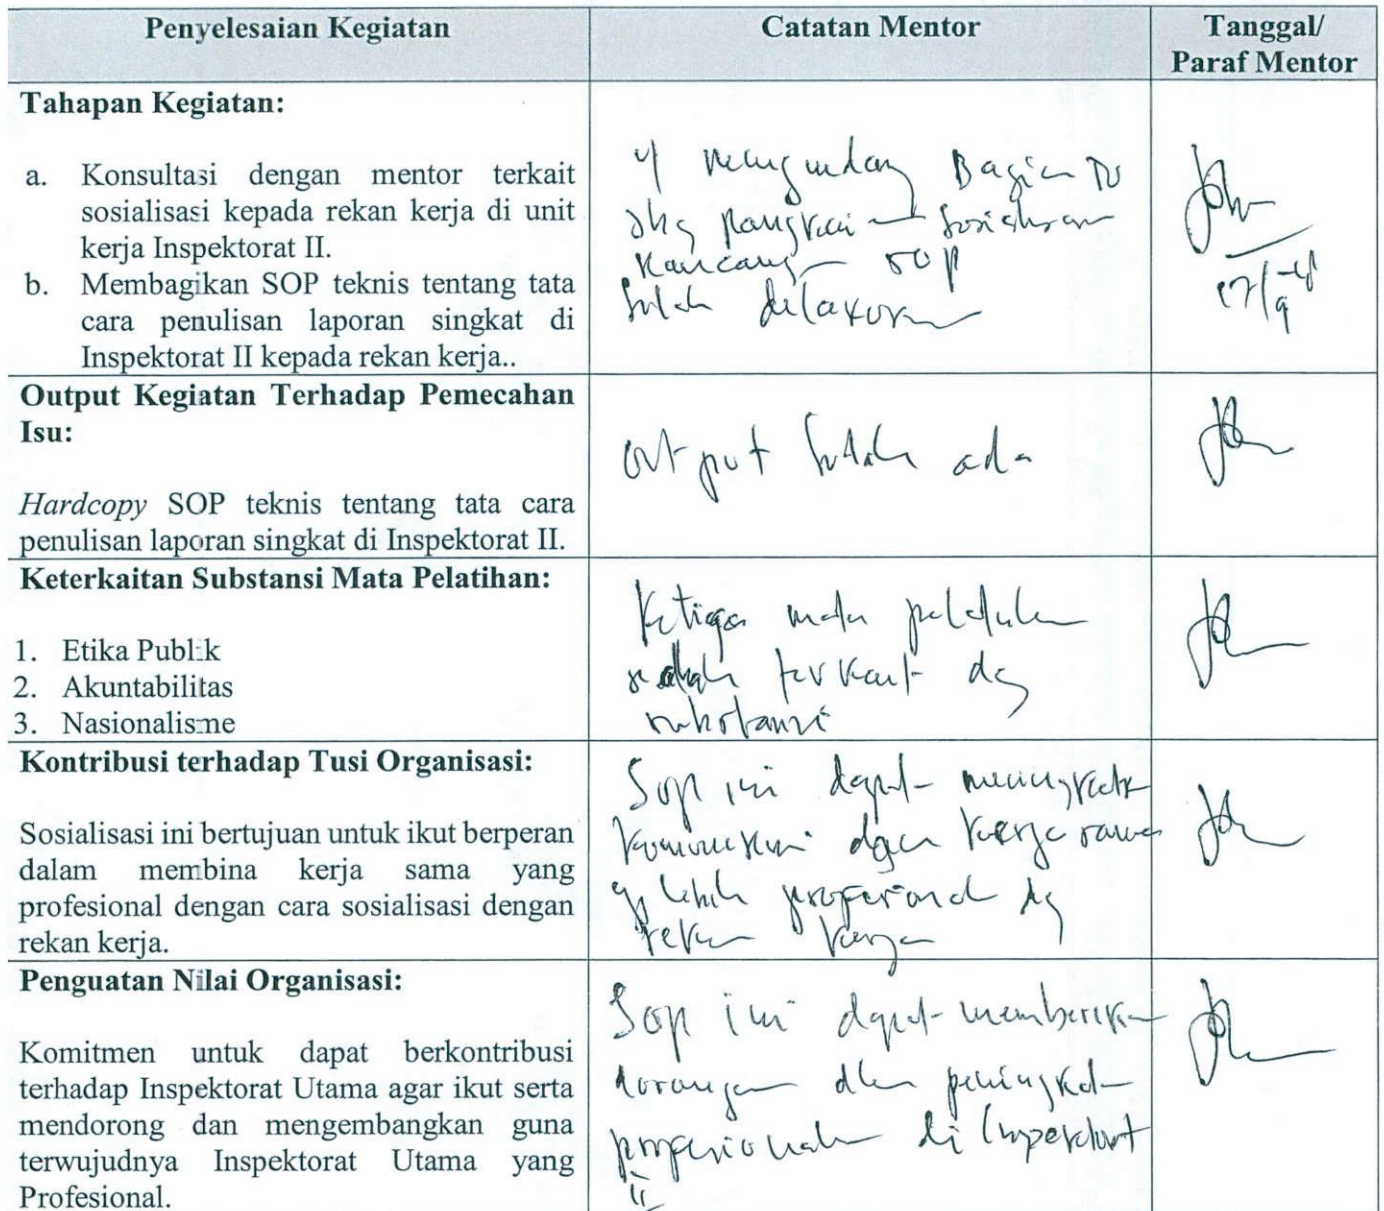 Penyelesaian Kegiatan
Catatan Mentor
Tanggal/
Paraf Mentor
Tahapan Kegiatan:
a. Konsultasi dengan mentor terkait
sosialisasi kepada rekan kerja di unit
kerja Inspektorat II.
b. Membagikan SOP teknis tentang tata
cara penulisan laporan singkat di
Inspektorat II kepada rekan kerja..
mengundang Bagian TU
SOP
Output Kegiatan Terhadap Pemecahan
Isu:
Hardcopy SOP teknis tentang tata cara
penulisan laporan singkat di Inspektorat II.
output sudah ada
Keterkaitan Substansi Mata Pelatihan:
1. Etika Publik
2. Akuntabilitas
3. Nasionalisme
Ketiga mata pelatihan
sudah terkait dg
substansi
Kontribusi terhadap Tusi Organisasi:
Sosialisasi ini bertujuan untuk ikut berperan
dalam membina kerja sama yang
profesional dengan cara sosialisasi dengan
rekan kerja.
Sop ini dapat meningkatkan
komunikasi kerja sama
yg lebih profesional dg
rekan kerja
Penguatan Nilai Organisasi:
Komitmen untuk dapat berkontribusi
terhadap Inspektorat Utama agar ikut serta
mendorong dan mengembangkan guna
terwujudnya Inspektorat Utama yang
Profesional.
Sop ini dapat memberikan
dorongan dlm
di Inspektorat
II